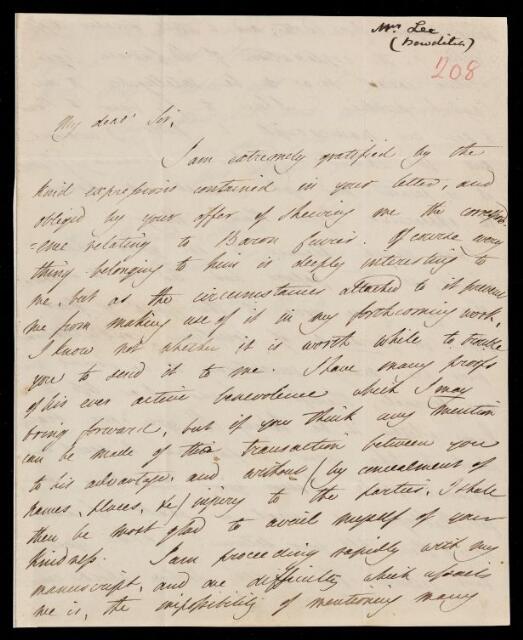 Mrs Lee
(Bowditch)
208
My dear Sir,
I am extremely gratified by the
kind expressions contained in your letter, and
obliged by your offer of shewing me the correspond
=ence relating to Baron Cuvier. Of course every
thing belonging to him is deeply interesting to
me, but as the circumstances attached to it prevent
me from making use of it in my forthcoming work,
I know not whether it is worth while to trouble
you to send it to me. I have many proofs
of his ever active benevolence which I may
bring forward, but if you think any mention
can be made of this transaction between you
to his advantage, and without (by concealment of
names, places, &c) injury to the parties, I shall
then be most glad to avail myself of your
kindness. I am proceeding rapidly with my
manuscript, and one difficulty which assails
me is, the impossibility of mentioning many